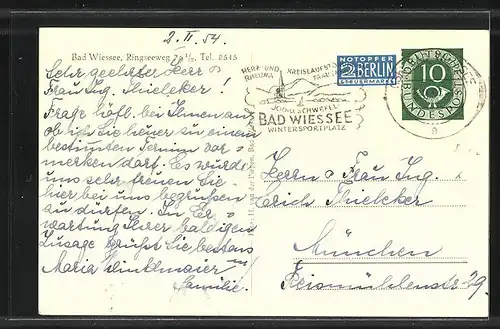 2. II. 54.
Bad Wiessee, Ringseeweg 70 1/2, Tel. 8545
Sehr geehrter Herr u.
Frau Ing. Thieleker!
Frage höfl. bei Ihnen an,
ob ich Sie heuer zu einem
bestimmten Termin vor
merken darf. Es würde
uns sehr freuen Sie
hier bei uns begrüßen
zu dürfen. In Er
wartung Ihrer baldigen
Zusage grüßt Sie bestens
Maria
Familie.
HERZ- UND
RHEUMA
KREISLAUFST.
FRAUEN
JOD- U. SCHWEFEL
BAD WIESSEE
WINTERSPORTPLATZ
NOTOPFER
2 BERLIN
STEUERMARKE
DEUTSCHE BUNDESPOST
10
Herrn u. Frau Ing.
Erich Thieleker
München
Freismühlenstr. 39.